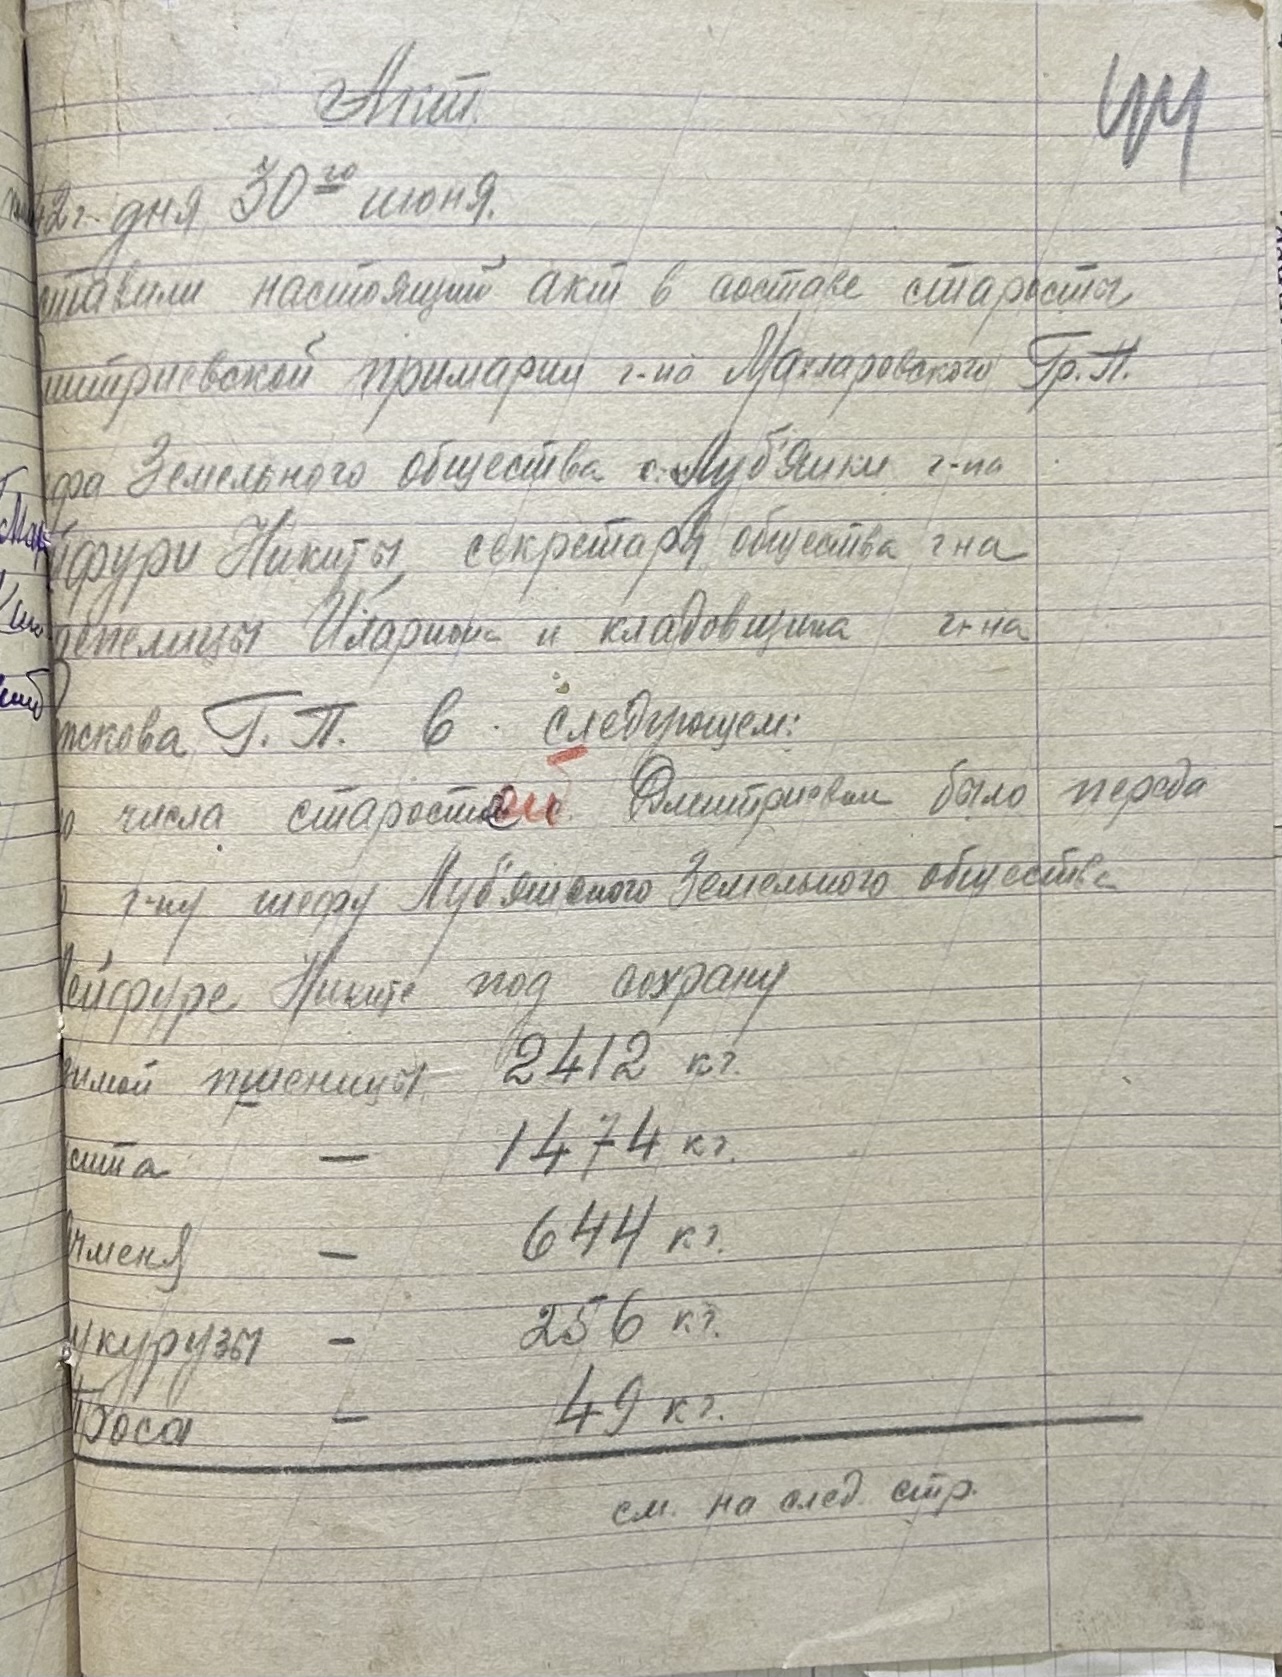 44
Акт.
42 г. дня 30го июня.
ставили настоящий акт в составе старосты
митриевской примарии г-на Махларовского Гр. П.
фа Земельного общества с. Луб'янки г-на
йфури Никиты, секретаря общества г-на
репелицы Илариона и кладовщика г-на
Г. П. в следующем:
о числа старостой Дмитриевом было переда
о г-ну шефу Луб'янского Земельного общества
ейфуре Никите под сохрану
зимой пшеницы 2412 кг.
жита — 1474 кг.
ячменя — 644 кг.
укурузы — 256 кг.
Проса — 49 кг.
см. на след. стр.